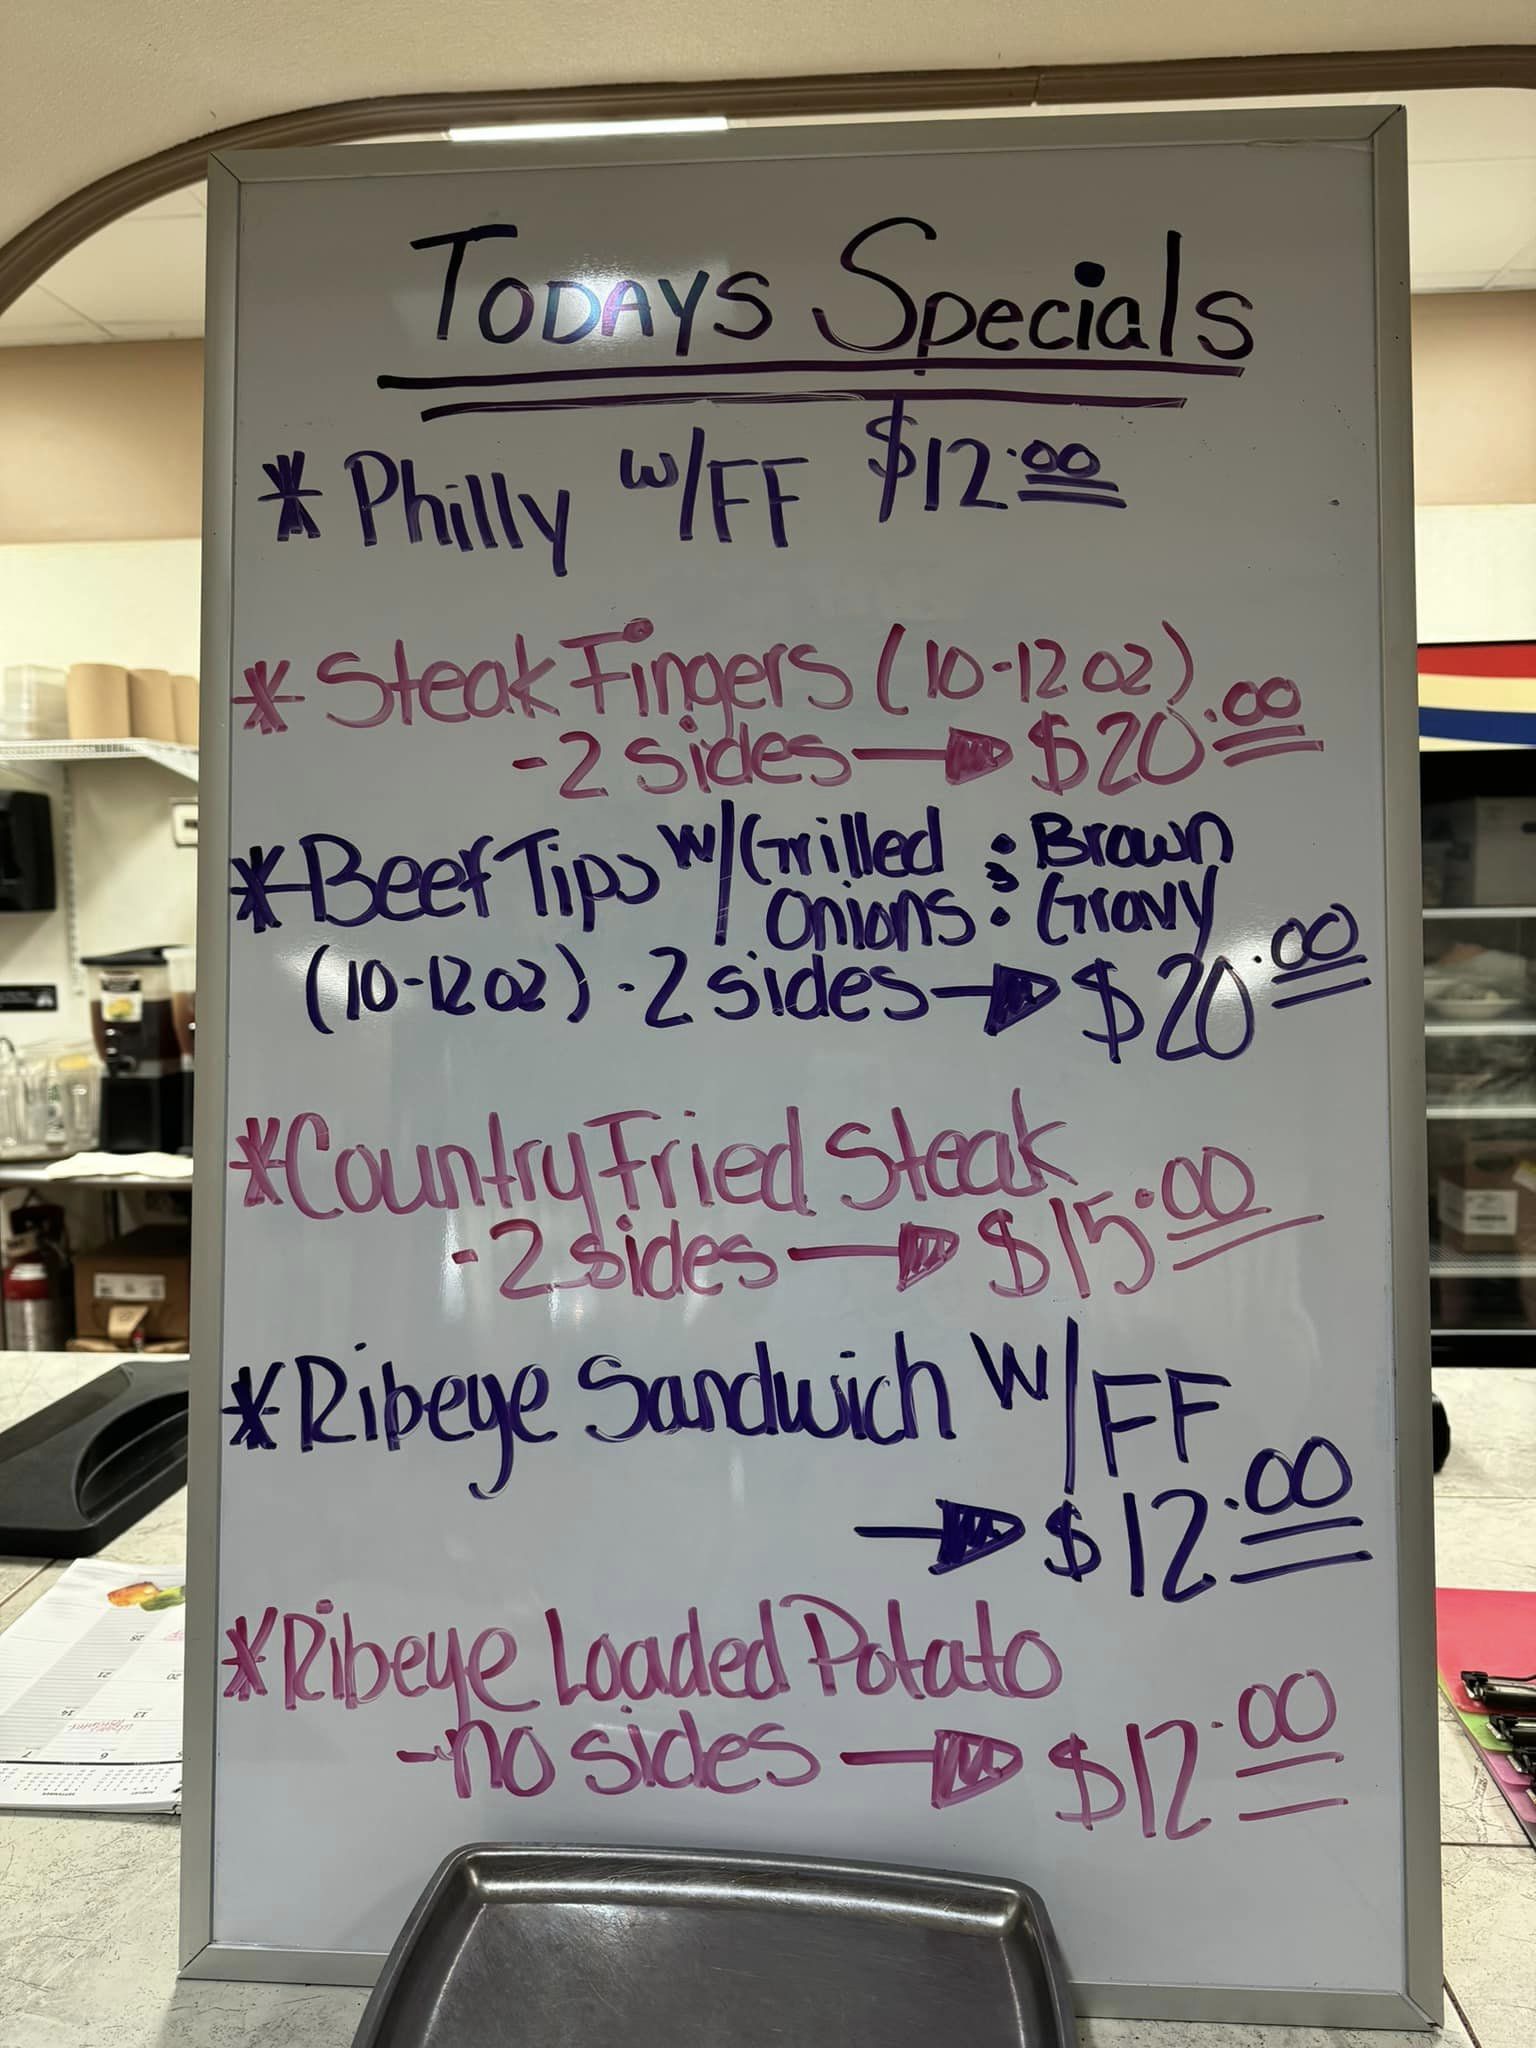 Todays Specials
* Philly w/FF $12.00
* Steak Fingers (10-12oz)
-2 sides → $20.00
* Beef Tips w/Grilled Onions & Brown Gravy
(10-12oz) -2 sides → $20.00
* Country Fried Steak
-2 sides → $15.00
* Ribeye Sandwich w/FF
→ $12.00
* Ribeye Loaded Potato
-no sides → $12.00
28
21
20
14
13
7
6